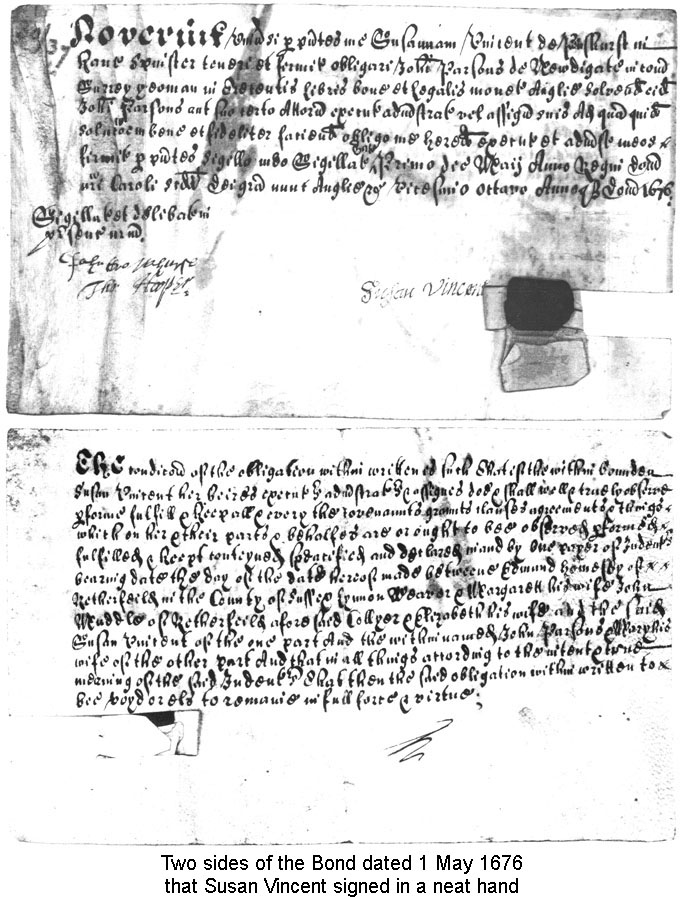 Noverint univsi p pntes me Susannam Vincent de in
Spinster teneri et firmit obligari Johi Parsons de Newdigate in Com
Surrey yeoman in libris bone et legalis monet Anglie solvend eid
Johi Parsons aut suo certo Attorn execut administrat vel assign suis Ad qua quid
soluc[i]oem bene et fideliter faciend obligo me hered execut et administ meos
firmit p pntes Sigillo meo Sigillat Primo die Maij Anno Regni Dom
nri Caroli scdi dei gra nunc Anglie &c Vicesimo octavo Annoq Dom 1676
Sigillat et deliberat in
Tho:
Susan Vincent
The condicon of the obligation within written is such That if the within bounden
Susan Vincent her heires execut administrat & assignes doe & shall well & truely observe
pforme fulfill & keepe all & every the covenaunts graunts clauses agreements & things
which on her & their parts & behalfes are or ought to bee observed pformed
fulfilled & kept conteyned specified and declared in and by one paper of Indent
bearing date the day of the date hereof made betweene Edmund Homesby of
Netherfeild in the County of Sussex Weaver & Margarett his wife John
Waddle of Netherfeild afore said Collyer & Elizabeth his wife and the said
Susan Vincent of the one part And the within named John Parsons & Mary his
wife of the other part And that in all things according to the intent & true
meaning of the said Indent That then the said obligation within written to
bee voyd or els to remaine in full force & virtue
Two sides of the Bond dated 1 May 1676
that Susan Vincent signed in a neat hand